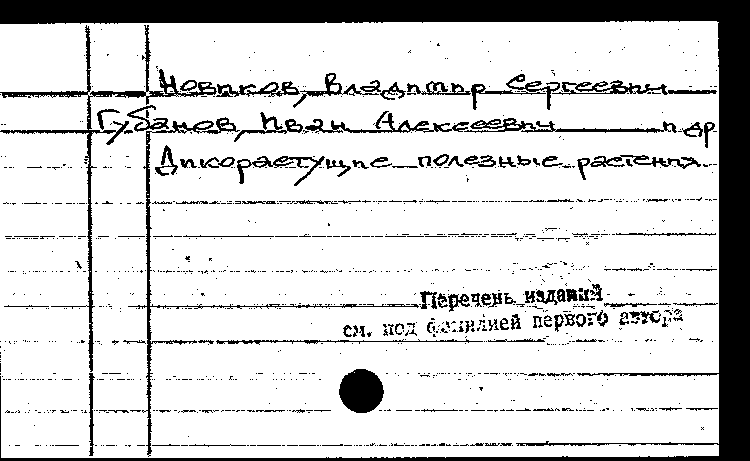 Новиков, Владимир Сергеевич
Губанов, Иван Алексеевич и др
Дикорастущие полезные растения
Перечень изданий
см. под фамилией первого автора